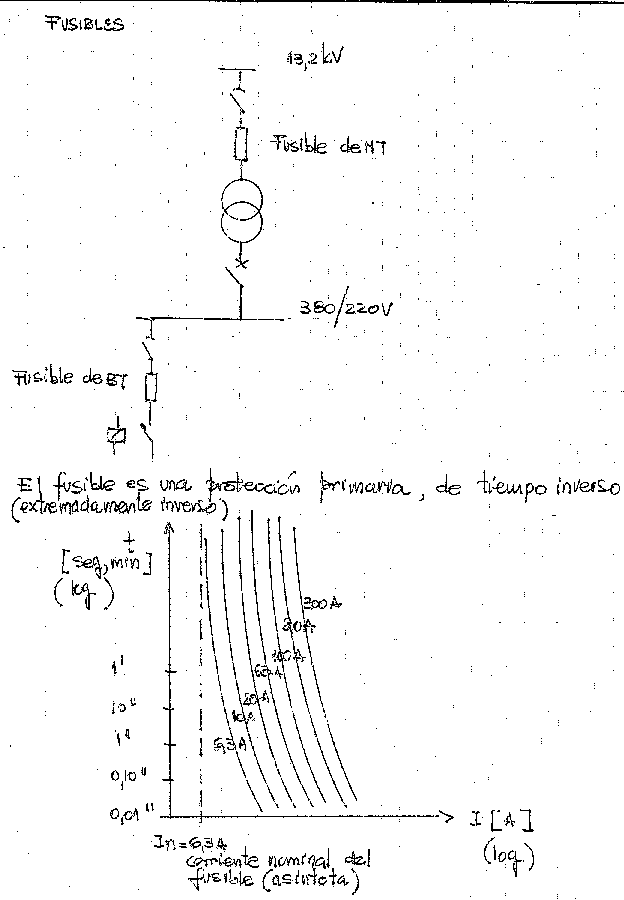 FUSIBLES
13,2 kV
Fusible de MT
380/220V
Fusible de BT
El fusible es una protección primaria, de tiempo inverso
(extremadamente inverso)
t
[seg, min]
(log)
200A
80A
100A
63A
20A
10A
6,3A
1'
10"
1"
0,10"
0,01"
I [A]
(log)
In=6,3A
corriente nominal del
fusible (asíntota)